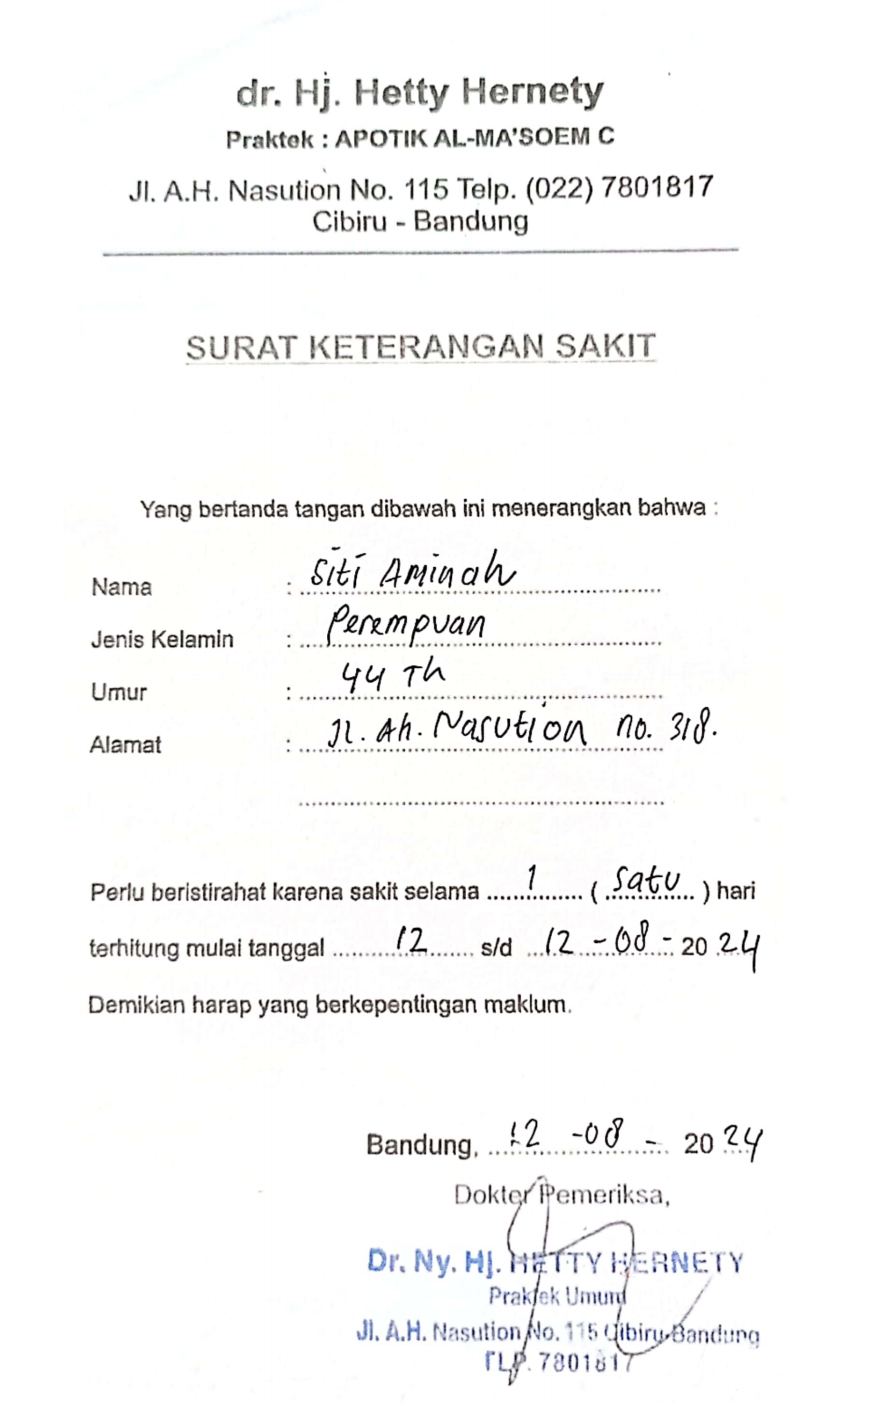 dr. Hj. Hetty Hernety
Praktek : APOTIK AL-MA'SOEM C
Jl. A.H. Nasution No. 115 Telp. (022) 7801817
Cibiru - Bandung
SURAT KETERANGAN SAKIT
Yang bertanda tangan dibawah ini menerangkan bahwa :
Nama : Siti Aminah
Jenis Kelamin : Perempuan
Umur : 44 Th
Alamat : Jl. Ah. Nasution no. 318.
Perlu beristirahat karena sakit selama 1 ( Satu ) hari
terhitung mulai tanggal 12 s/d 12 - 08 - 2024
Demikian harap yang berkepentingan maklum.
Bandung, 12 - 08 - 2024
Dokter Pemeriksa,
Dr. Ny. Hj. HETTY HERNETY
Praktek Umum
Jl. A.H. Nasution No. 115 Cibiru-Bandung
TLP. 7801817